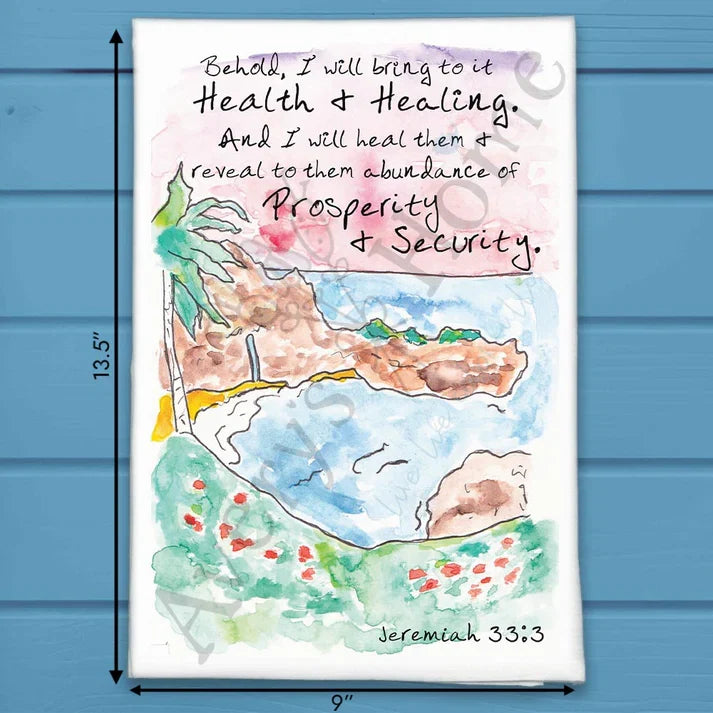 Behold, I will bring to it
Health & Healing.
And I will heal them &
reveal to them abundance of
Prosperity
& Security.
13.5”
Avery's Home
Jeremiah 33:3
9”